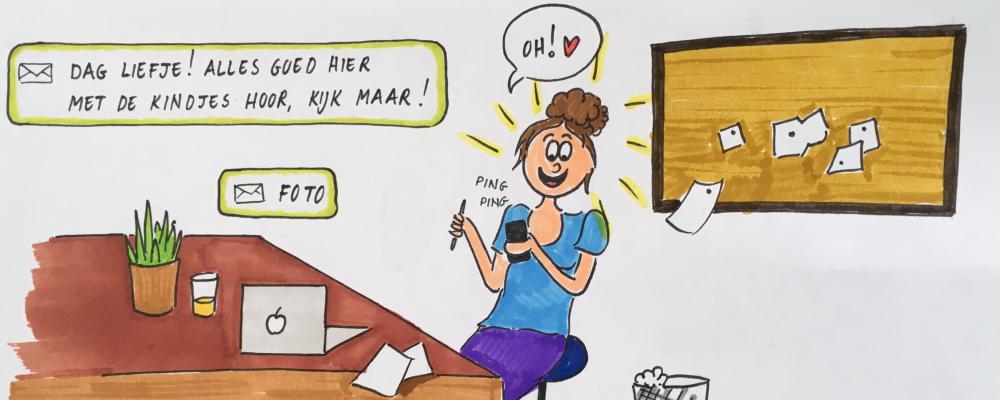 OH!
DAG LIEFJE! ALLES GOED HIER
MET DE KINDJES HOOR, KIJK MAAR!
FOTO
PING
PING